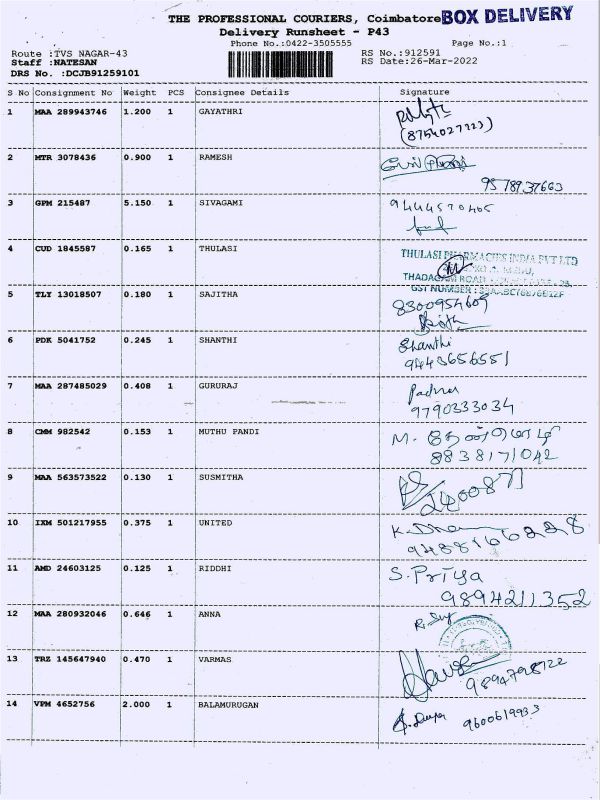 THE PROFESSIONAL COURIERS, Coimbatore BOX DELIVERY
Delivery Runsheet - P43
Phone No.:0422-3505555 Page No.:1
Route :TVS NAGAR-43 RS No.:912591
Staff :NATESAN RS Date:26-Mar-2022
DRS No. :DCJB91259101
S No Consignment No Weight PCS Consignee Details Signature
1 MAA 289943746 1.200 1 GAYATHRI
(8754027223)
2 MTR 3078436 0.900 1 RAMESH
9578937663
3 GPM 215487 5.150 1 SIVAGAMI 9444570405
4 CUD 1845587 0.165 1 THULASI THULASI PHARMACIES INDIA PVT LTD
THADAGAM ROAD
GST NUMBER :
5 TLY 13018507 0.180 1 SAJITHA 8300954609
6 PDK 5041752 0.245 1 SHANTHI Shanthi
9443656551
7 MAA 287485029 0.408 1 GURURAJ Padma
9790333034
8 CMM 982542 0.153 1 MUTHU PANDI M. தேன்மொழி
8838171042
9 MAA 563573522 0.130 1 SUSMITHA
10 IXM 501217955 0.375 1 UNITED
11 AMD 24603125 0.125 1 RIDDHI S. Priya
9894211352
12 MAA 280932046 0.646 1 ANNA
13 TRZ 145647940 0.470 1 VARMAS
9894798722
14 VPM 4652756 2.000 1 BALAMURUGAN 9600619933